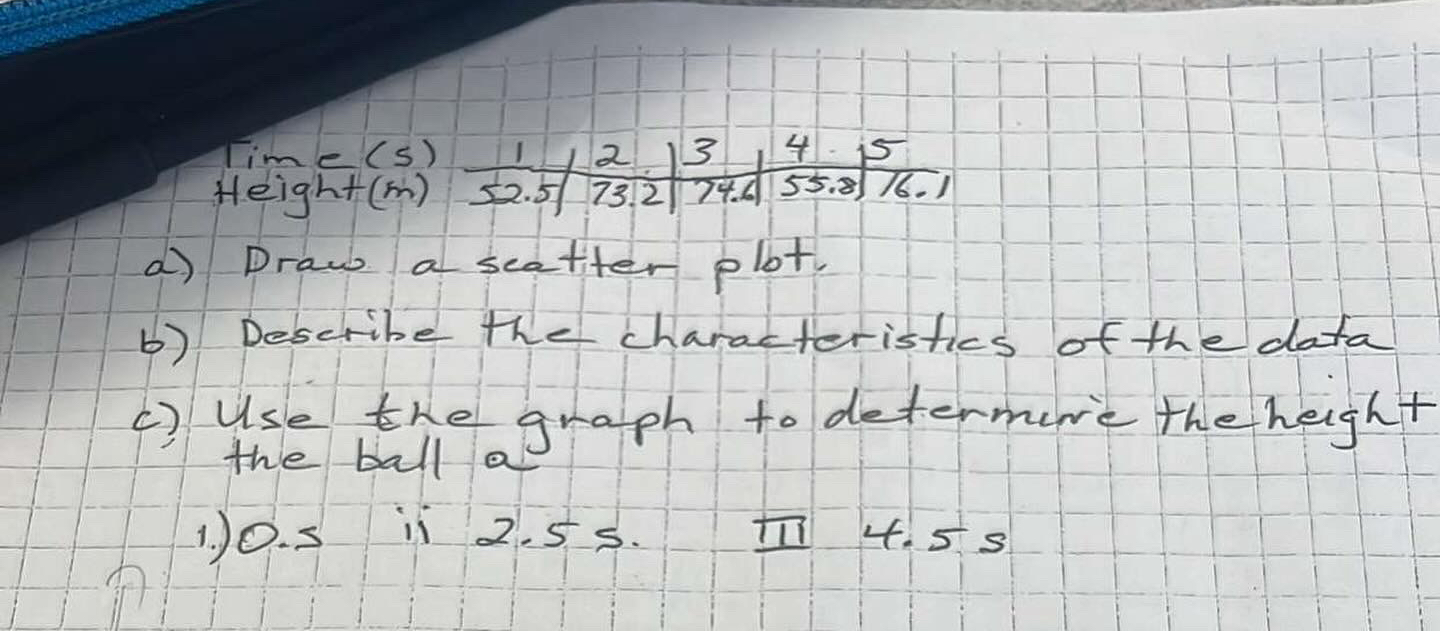 Time (s) 1 2 3 4 5
Height (m) 52.5 73.2 74.6 55.8 16.1
a) Draw a scatter plot.
b) Describe the characteristics of the data
c) Use the graph to determine the height
the ball a
1.) 0.s ii 2.5 s. III 4.5 s